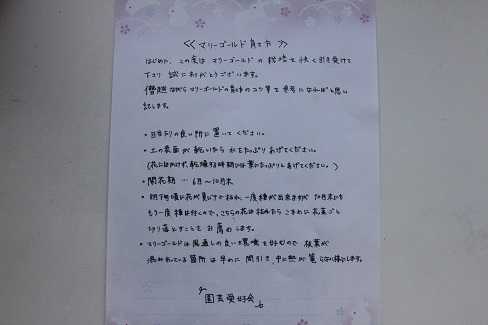 ≪マリーゴールド育て方≫
はじめに、この度は マリーゴールド の 栽培を快く引き受けて
下さり 誠にありがとうございます。
僭越ながらマリーゴールドの育て方のコツ等を参考になればと思い
記します。
・日当たりの良い所に置いてください。
・土の表面が乾いたら水をたっぷりあげてください。
(花にはかけず、乾燥する時期には葉にたっぷりとあげてください。)
・開花期 … 6月〜10月末
・8月下旬頃に花が黄いずで枯れ、一度種が出来ますが 10月末にも
もう一度種は付くので、こちらの花は枯れたらこまめに花茎ごと
切り落とすことをお薦めします。
・マリーゴールドは風通しの良い環境を好むので 枝葉が
混み合っている箇所は早めに間引き、中に熱が篭らない様にします。
園芸愛好会